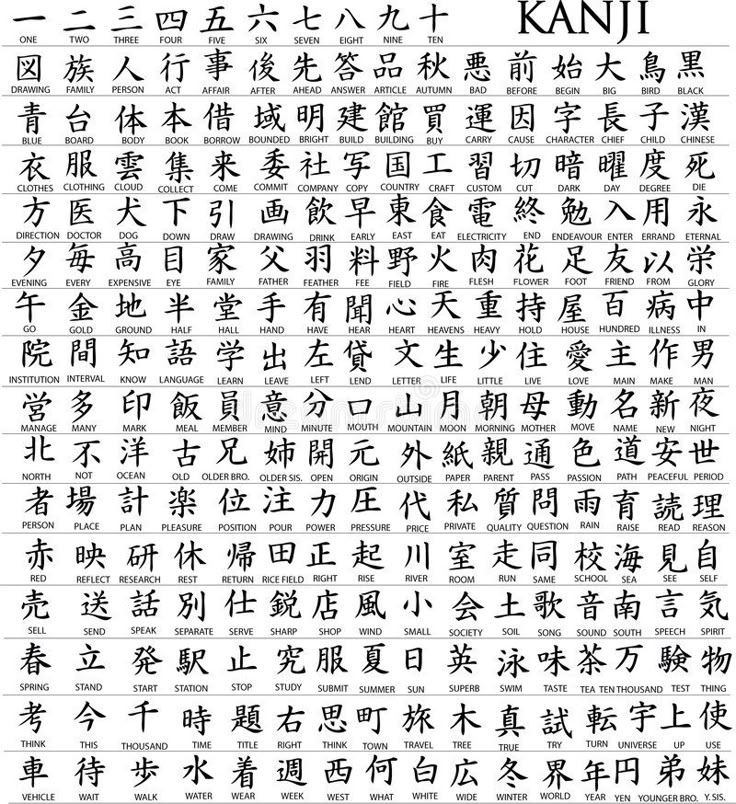 一 二 三 四 五 六 七 八 九 十 KANJI
ONE TWO THREE FOUR FIVE SIX SEVEN EIGHT NINE TEN
図 族 人 行 事 後 先 答 品 秋 悪 前 始 大 鳥 黒
DRAWING FAMILY PERSON ACT AFFAIR AFTER AHEAD ANSWER ARTICLE AUTUMN BAD BEFORE BEGIN BIG BIRD BLACK
青 台 体 本 借 域 明 建 館 買 運 因 字 長 子 漢
BLUE BOARD BODY BOOK BORROW BOUNDED BRIGHT BUILD BUILDING BUY CARRY CAUSE CHARACTER CHIEF CHILD CHINESE
衣 服 雲 集 来 委 社 写 国 工 習 切 暗 曜 度 死
CLOTHES CLOTHING CLOUD COLLECT COME COMMIT COMPANY COPY COUNTRY CRAFT CUSTOM CUT DARK DAY DEGREE DIE
方 医 犬 下 引 画 飲 早 東 食 電 終 勉 入 用 永
DIRECTION DOCTOR DOG DOWN DRAW DRAWING DRINK EARLY EAST EAT ELECTRICITY END ENDEAVOUR ENTER ERRAND ETERNAL
夕 毎 高 目 家 父 羽 料 野 火 肉 花 足 友 以 栄
EVENING EVERY EXPENSIVE EYE FAMILY FATHER FEATHER FEE FIELD FIRE FLESH FLOWER FOOT FRIEND FROM GLORY
午 金 地 半 堂 手 有 聞 心 天 重 持 屋 百 病 中
GO GOLD GROUND HALF HALL HAND HAVE HEAR HEART HEAVENS HEAVY HOLD HOUSE HUNDRED ILLNESS IN
院 間 知 語 学 出 左 貸 文 生 少 住 愛 主 作 男
INSTITUTION INTERVAL KNOW LANGUAGE LEARN LEAVE LEFT LEND LETTER LIFE LITTLE LIVE LOVE MAIN MAKE MAN
営 多 印 飯 員 意 分 口 山 月 朝 母 動 名 新 夜
MANAGE MANY MARK MEAL MEMBER MIND MINUTE MOUTH MOUNTAIN MOON MORNING MOTHER MOVE NAME NEW NIGHT
北 不 洋 古 兄 姉 開 元 外 紙 親 通 色 道 安 世
NORTH NOT OCEAN OLD OLDER BRO. OLDER SIS. OPEN ORIGIN OUTSIDE PAPER PARENT PASS PASSION PATH PEACEFUL PERIOD
者 場 計 楽 位 注 力 圧 代 私 質 問 雨 育 読 理
PERSON PLACE PLAN PLEASURE POSITION POUR POWER PRESSURE PRICE PRIVATE QUALITY QUESTION RAIN RAISE READ REASON
赤 映 研 休 帰 田 正 起 川 室 走 同 校 海 見 自
RED REFLECT RESEARCH REST RETURN RICE FIELD RIGHT RISE RIVER ROOM RUN SAME SCHOOL SEA SEE SELF
売 送 話 別 仕 鋭 店 風 小 会 土 歌 音 南 言 気
SELL SEND SPEAK SEPARATE SERVE SHARP SHOP WIND SMALL SOCIETY SOIL SONG SOUND SOUTH SPEECH SPIRIT
春 立 発 駅 止 究 服 夏 日 英 泳 味 茶 万 験 物
SPRING STAND START STATION STOP STUDY SUBMIT SUMMER SUN SUPERB SWIM TASTE TEA TEN THOUSAND TEST THING
考 今 千 時 題 右 思 町 旅 木 真 試 転 宇 上 使
THINK THIS THOUSAND TIME TITLE RIGHT THINK TOWN TRAVEL TREE TRUE TRY TURN UNIVERSE UP USE
車 待 歩 水 着 週 西 何 白 広 冬 界 年 円 弟 妹
VEHICLE WAIT WALK WATER WEAR WEEK WEST WHAT WHITE WIDE WINTER WORLD YEAR YEN YOUNGER BRO. Y. SIS.